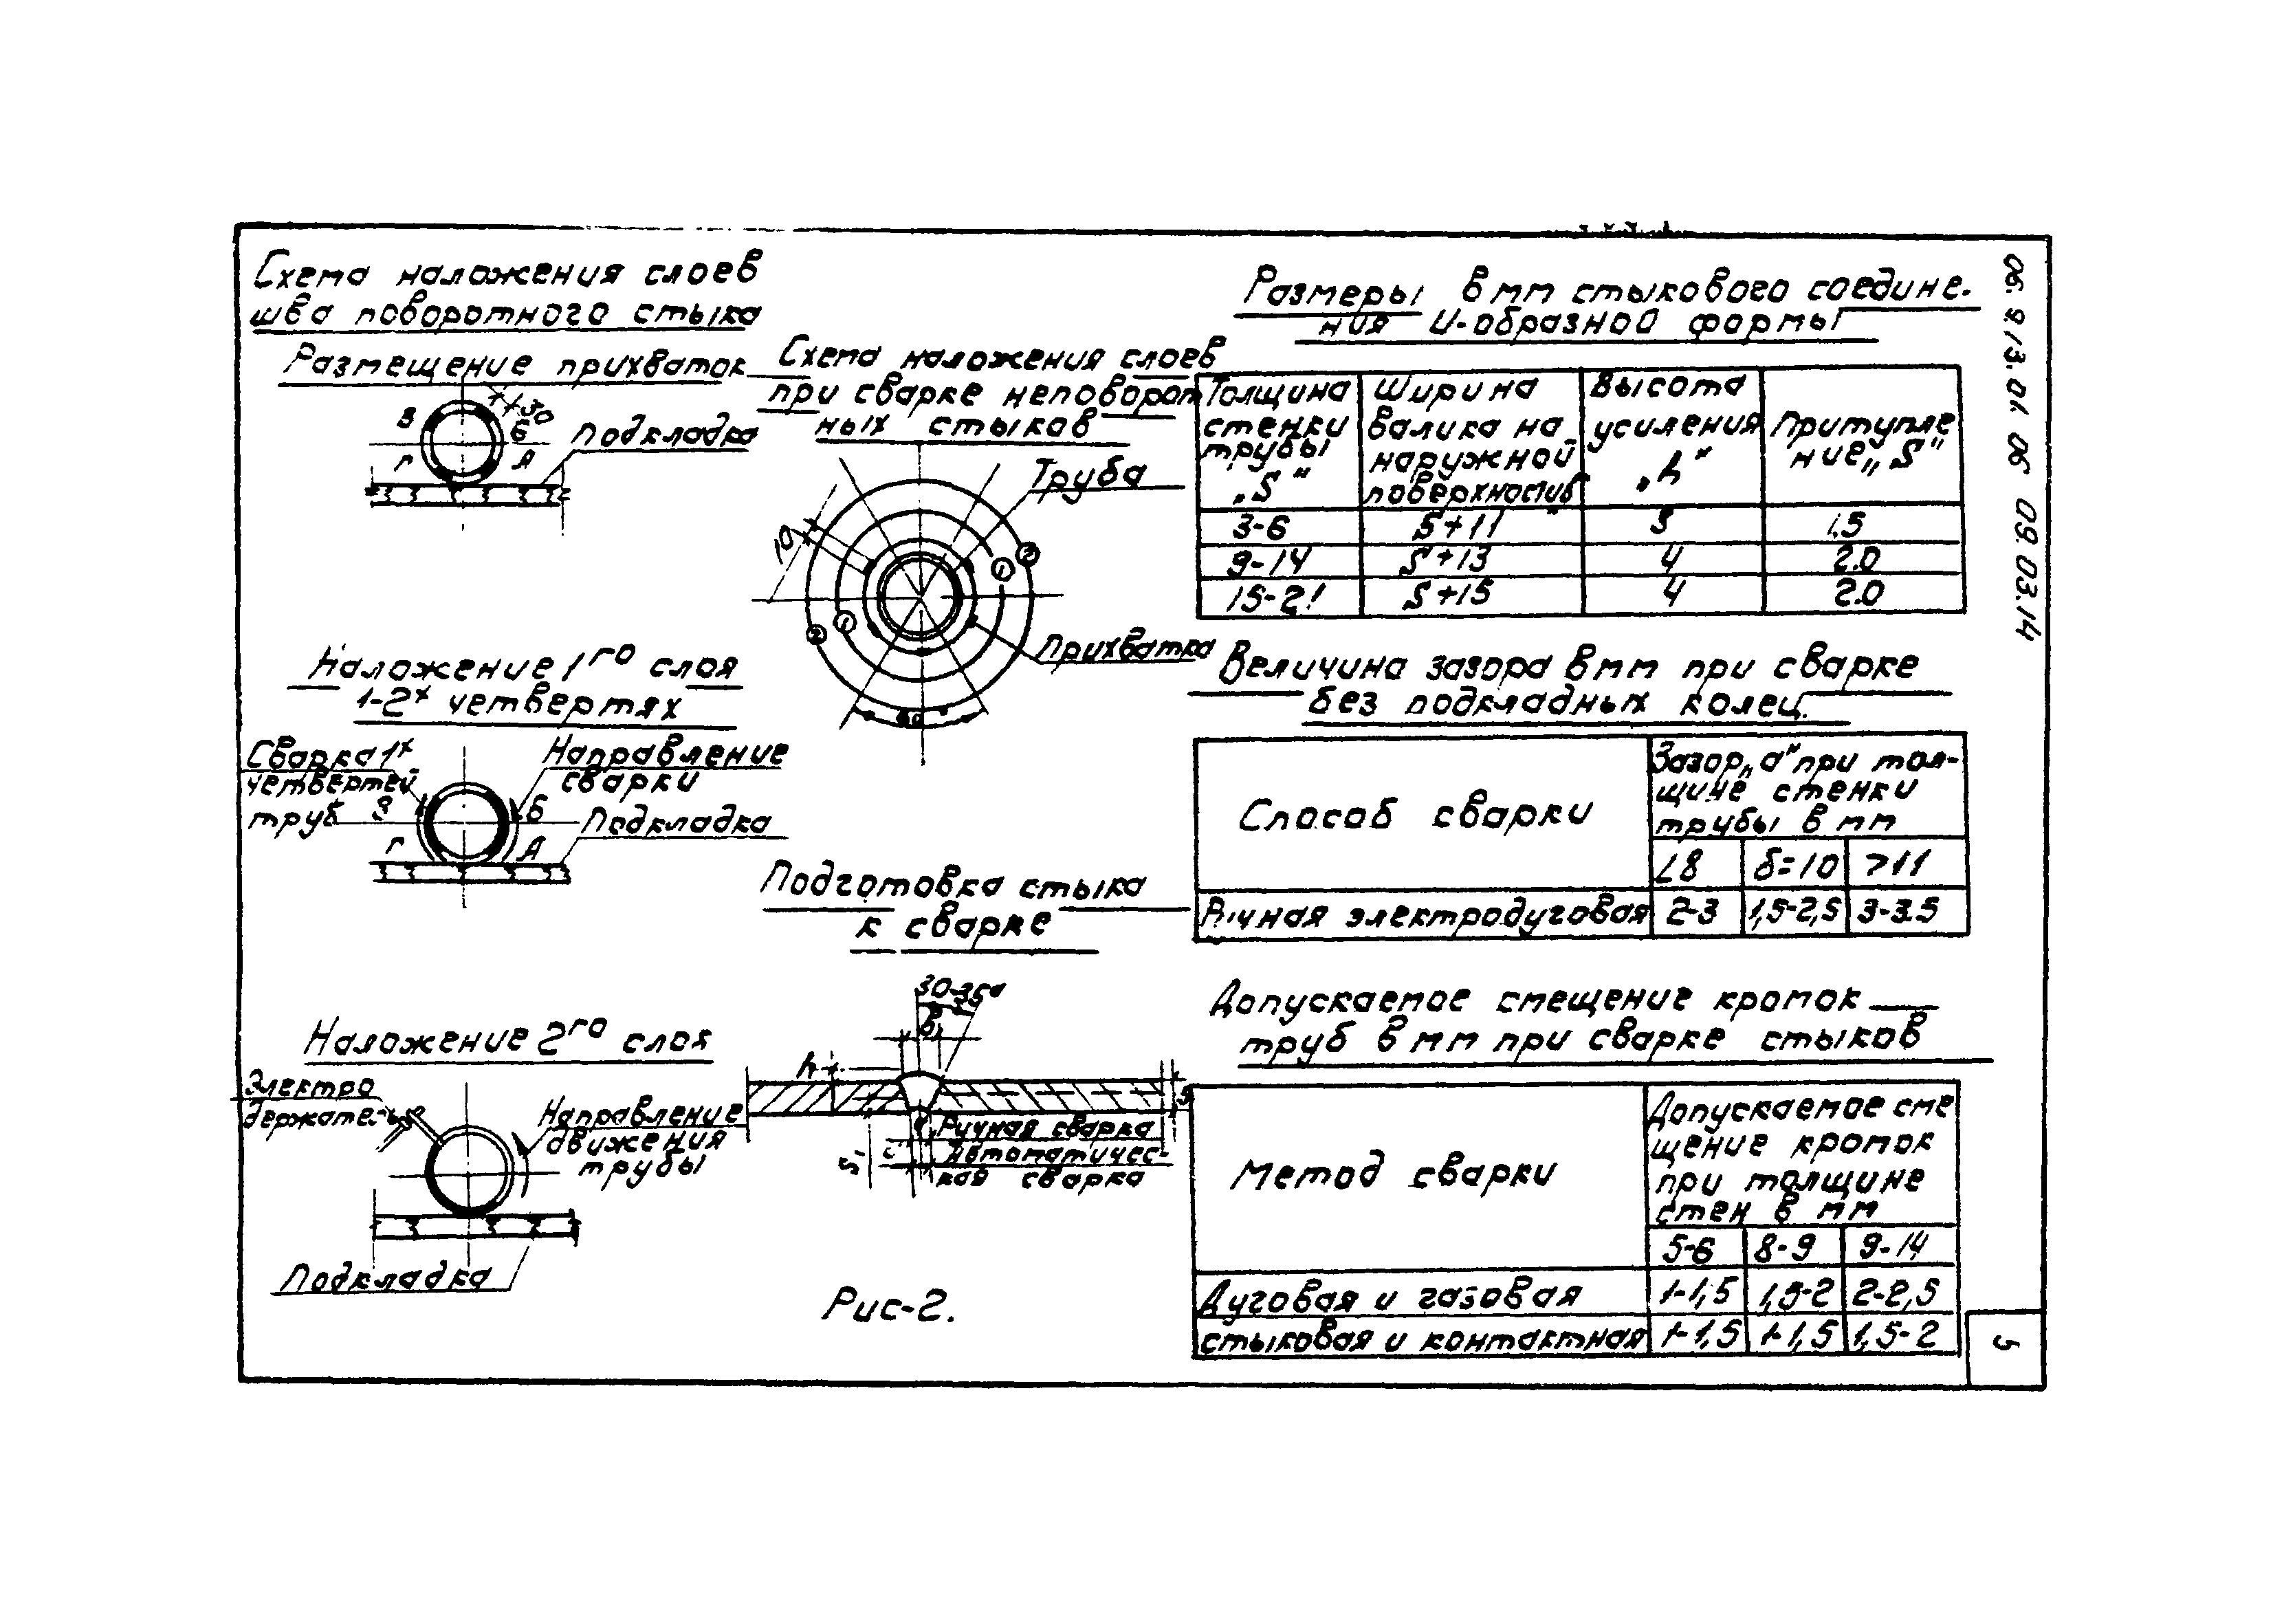 Схема наложения слоев
шва поворотного стыка
Размещение прихваток
30
В
Б
Г
А
Подкладка
Наложение 1го слоя
1-2х четвертях
Сварка 1х
четвертей
труб
Направление
сварки
В
Б
Г
А
Подкладка
Наложение 2го слоя
Электро
держатель
Направление
движения
трубы
Подкладка
Схема наложения слоев
при сварке неповорот
ных стыков
Труба
10
1
2
1
2
Прихватка
60°
Подготовка стыка
к сварке
30-35°
в
h
S
Ручная сварка
Автоматичес-
кая сварка
Рис-2.
Размеры в мм стыкового соедине-
ния U-образной формы
Толщина стенки трубы „S“
Ширина валика на наружной поверхности „в“
Высота усиления „h“
Притупле ние „S“
3-6 S+11 3 1.5
9-14 S+13 4 2.0
15-21 S+15 4 2.0
Величина зазора в мм при сварке
без подкладных колец.
Способ сварки
Зазор „а“ при тол-
щине стенки
трубы в мм
∠8 δ=10 >11
Ручная электродуговая 2-3 1,5-2,5 3-3.5
Допускаемое смещение кромок
труб в мм при сварке стыков
Метод сварки
Допускаемое сме
щение кромок
при толщине
стен в мм
5-6 8-9 9-14
Дуговая и газовая 1-1,5 1,5-2 2-2,5
стыковая и контактная 1-1,5 1-1,5 1,5-2
06. 9.13. 01 06 09. 03.14
5